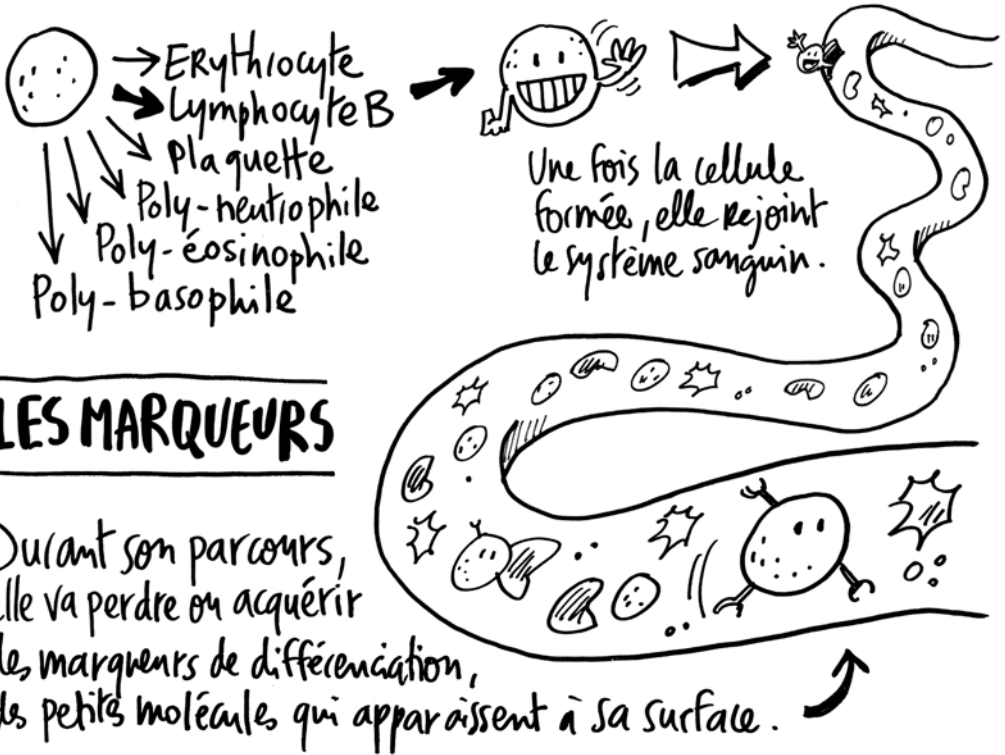 Erythrocyte
Lymphocyte B
Plaquette
Poly-neutrophile
Poly-éosinophile
Poly-basophile
Une fois la cellule
formée, elle rejoint
le système sanguin.
LES MARQUEURS
Durant son parcours,
elle va perdre ou acquérir
des marqueurs de différenciation,
des petites molécules qui apparaissent à sa surface.